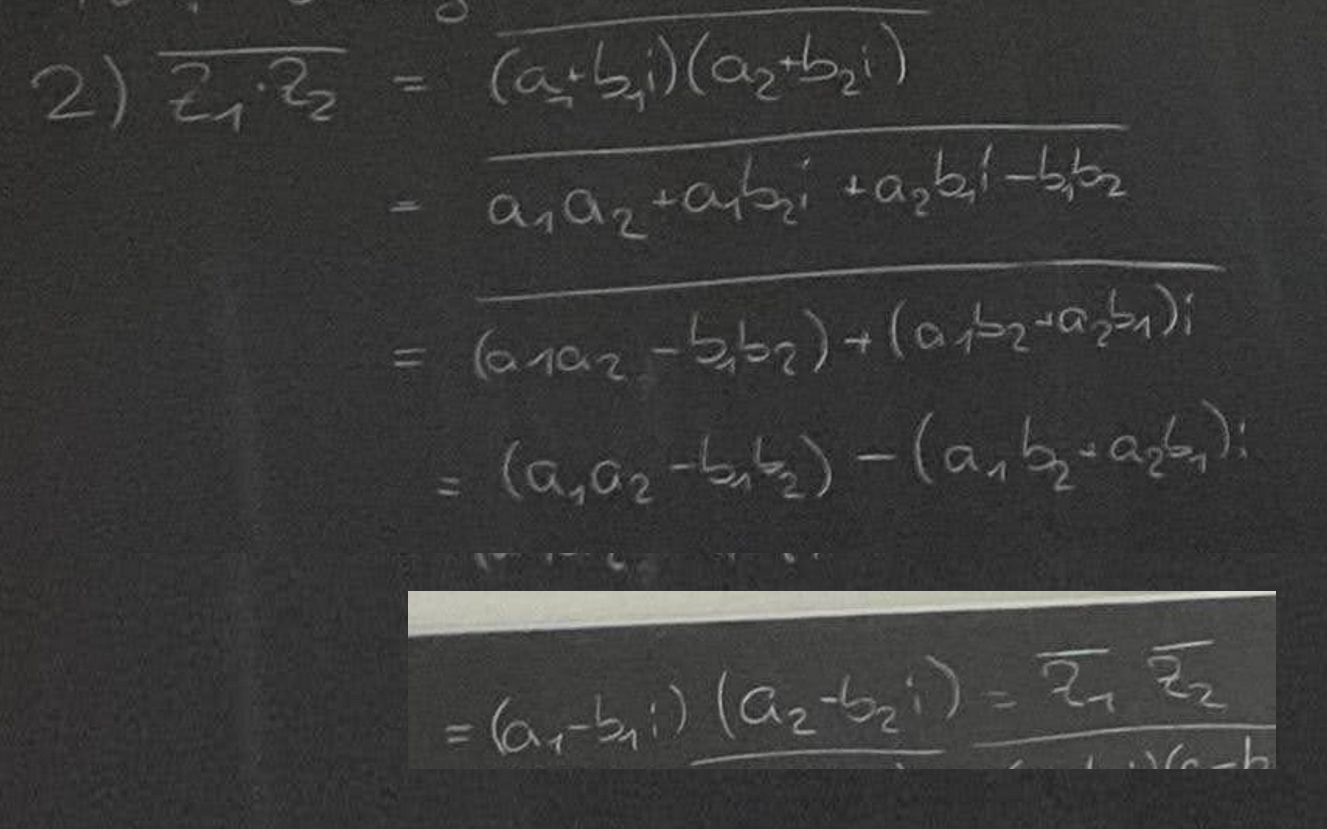 2) \overline{z₁·z₂} = \overline{(a₁+b₁i)(a₂+b₂i)}
= \overline{a₁a₂+a₁b₂i+a₂b₁i-b₁b₂}
= \overline{(a₁a₂-b₁b₂)+(a₁b₂+a₂b₁)i}
= (a₁a₂-b₁b₂)-(a₁b₂+a₂b₁)i
= (a₁-b₁i)(a₂-b₂i) = \overline{z₁} \overline{z₂}